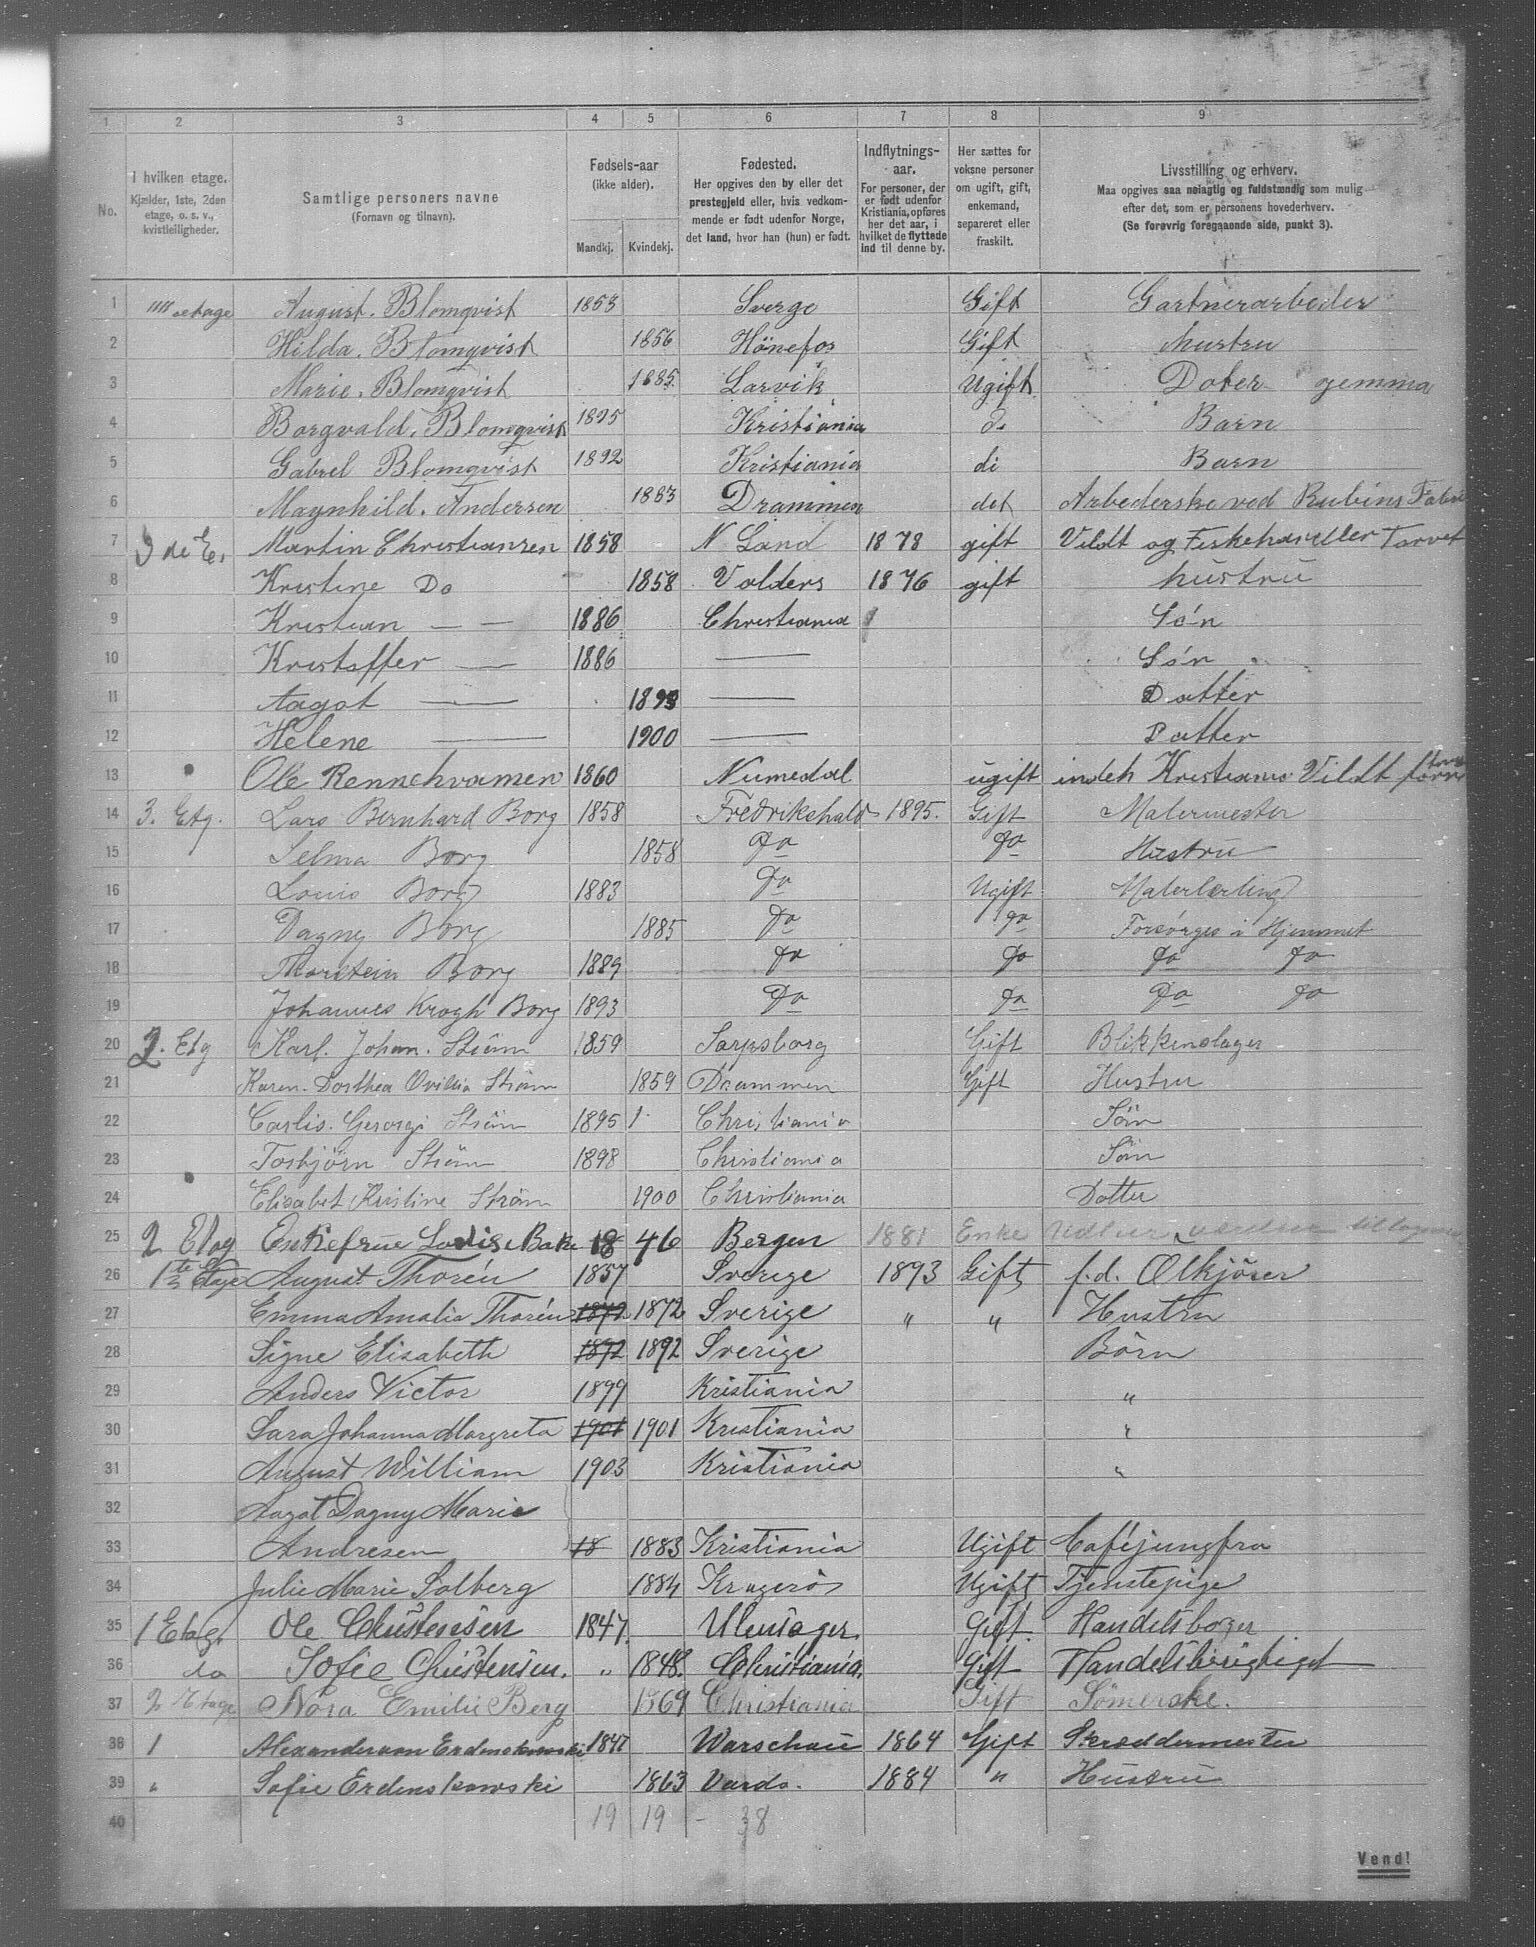 1 2 3 4 5 6 7 8 9
No.
I hvilken etage.
Kjælder, 1ste, 2den
etage, o. s. v.,
kvistleiligheder.
Samtlige personers navne
(Fornavn og tilnavn).
Fødsels-aar
(ikke alder).
Mandkj. Kvindekj.
Fødested.
Her opgives den by eller det
prestegjeld eller, hvis vedkom-
mende er født udenfor Norge,
det land, hvor han (hun) er født.
Indflytnings-
aar.
For personer, der
er født udenfor
Kristiania, opføres
her det aar, i
hvilket de flyttede
ind til denne by.
Her sættes for
voksne personer
om ugift, gift,
enkemand,
separeret eller
fraskilt.
Livsstilling og erhverv.
Maa opgives saa nøiagtig og fuldstændig som mulig
efter det, som er personens hovederhverv.
(Se forøvrig foregaaende side, punkt 3).
1 etage August. Blomqvist 1853 Sverge Gift Gartnerarbeder
2 Hilda. Blomqvist 1856 Hönefos Gift Hustru
3 Marie. Blomqvist 1885 Larvik Ugift Doter
4 Borgvald. Blomqvist 1895 Kristiania Barn
5 Gabrel Blomqvist 1892 Kristiania di Barn
6 Maynhild. Andersen 1883 Drammen det Arbederske ved Rubins Fabri
7 3 de E. Martin Christiansen 1858 N Land 1878 gift Vildt og Fiskehandler Torvet
8 Kristine Do 1858 Valders 1876 gift hustru
9 Kristian — — 1886 Christiania Sön
10 Kristoffer — 1886 — Sön
11 Aagot — 1893 — Datter
12 Helene — 1900 — Datter
13 Ole Rennehvamen 1860 Numedal ugift Vildt
14 3. Etg. Lars Bernhard Borg 1858 Fredrikshald 1895. Gift Malermester
15 Selma Borg 1858 Do Do Hustru
16 Louis Borg 1883 Do Ugift Malerlærling
17 Dagny Borg 1885 Do Do Forsörges i Hjemmet
18 Thorstein Borg 1889 Do Do Do Do
19 Johannes Krogh Borg 1893 Do Do Do Do
20 2. Etg Karl. Johan. Ström 1859 Sarpsborg Gift Blikkenslager
21 Karen. Dorthea Ovilia Ström 1859 Drammen Gift Hustru
22 Carlis. Georg Ström 1895 1. Christiania Sön
23 Tosbjörn Ström 1898 Christiania Sön
24 Elisabet Kristine Ström 1900 Christiania Dotter
25 2 Etag Enkefrue Lovise Bake 18 46 Bergen 1881 Enke
26 1te Etage August Thorén 1857 Sverige 1893 Gift f.d. Ølkjörer
27 Emma Amalia Thorén 1872 1872 Sverige " " Hustru
28 Signe Elisabeth 1892 1892 Sverige Börn
29 Anders Victor 1899 Kristiania "
30 Sara Johanna Margreta 1901 1901 Kristiania "
31 August William 1903 Kristiania "
32 Aagot Dagny Marie
33 Andresen 18 1883 Kristiania Ugift Caféjungfra
34 Julie Marie Solberg 1884 Kragerö Ugift Tjenstepige
35 1 Etag. Ole Christensen 1847. Ulensager. Gift. Handelsborger
36 do Sofie Christensen. " 1848. Christiania. Gift
37 2 Etage Nora Emilie Berg 1869 Christiania Gift Sömerske.
38 1 Alexander von Erdenskowski 1847 Warschau 1864 Gift Skræddermester
39 " Sofie Erdenskowski 1863 Vardo. 1884 " Hustru
40 19 19 - 38
Vend!